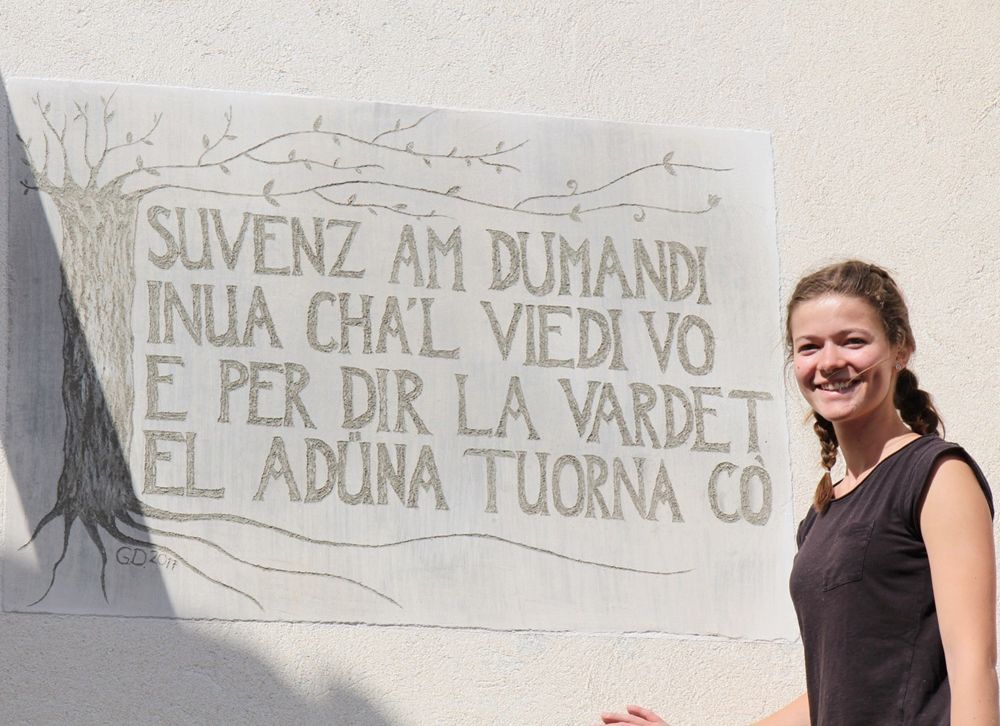 SUVENZ AM DUMANDI
INUA CHA'L VIEDI VO
E PER DIR LA VARDET
EL ADÜNA TUORNA CÒ
GD 2017